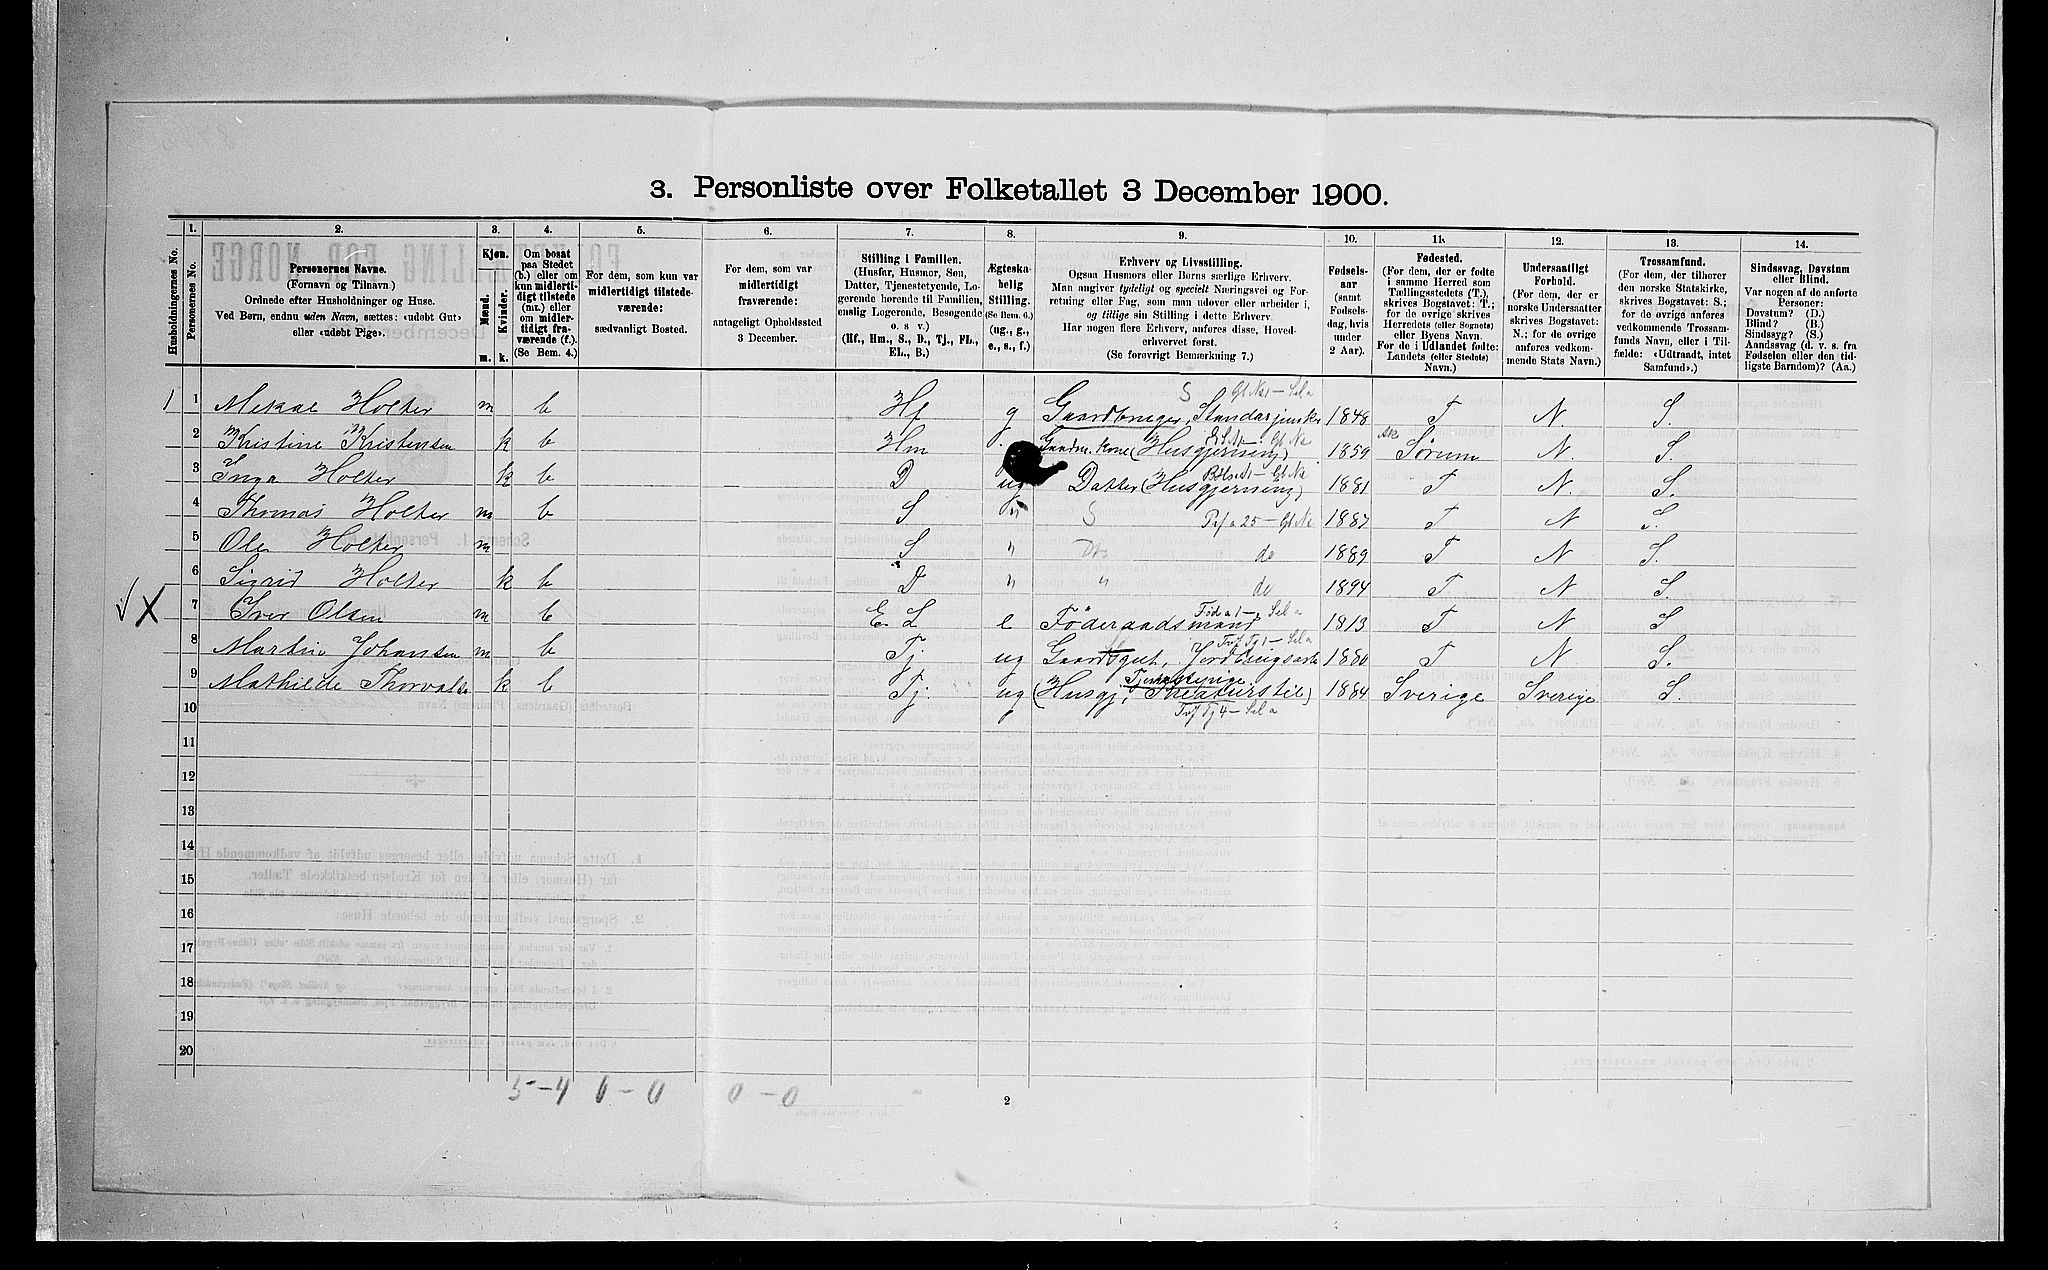 3. Personliste over Folketallet 3 December 1900.
1. 2. 3. 4. 5. 6. 7. 8. 9. 10. 11. 12. 13. 14.
Husholdningernes No.
Personernes No.
Personernes Navne.
(Fornavn og Tilnavn.)
Ordnede efter Husholdninger og Huse.
Ved Børn, endnu uden Navn, sættes: «udøbt Gut»
eller «udøbt Pige».
Kjøn.
Mænd.
Kvinder.
m. k.
Om bosat
paa Stedet
(b.) eller om
kun midlerti-
digt tilstede
(mt.) eller
om midler-
tidigt fra-
værende (f.).
(Se Bem. 4.)
For dem, som kun var
midlertidigt tilstede-
værende:
sædvanligt Bosted.
For dem, som var
midlertidigt
fraværende:
antageligt Opholdssted
3 December.
Stilling i Familien.
(Husfar, Husmor, Søn,
Datter, Tjenestetyende, Lo-
gerende hørende til Familien,
enslig Logerende, Besøgende
o. s. v.)
(Hf., Hm., S., D., Tj., FL.,
EL., B.)
Ægteska-
belig
Stilling.
(Se Bem. 6.)
(ug., g.,
e., s., f.)
Erhverv og Livsstilling.
Ogsaa Husmors eller Børns særlige Erhverv.
Man angiver tydeligt og specielt Næringsvei og For-
retning eller Fag, som man udøver eller arbeider i,
og tillige sin Stilling i dette Erhverv.
Har nogen flere Erhverv, anføres disse, Hoved-
erhvervet først.
(Se forøvrigt Bemerkning 7.)
Fødsels-
aar
(samt
Fødsels-
dag, hvis
under
2 Aar).
Fødested.
(For dem, der er fødte
i samme Herred som
Tællingsstedets (T.),
skrives Bogstavet: T.;
for de øvrige skrives
Herredets (eller Sognets)
eller Byens Navn.
For de i Udlandet fødte:
Landets (eller Stedets)
Navn.)
Undersaatligt
Forhold.
(For dem, der er
norske Undersaatter
skrives Bogstavet:
N.; for de øvrige
anføres vedkom-
mende Stats Navn.)
Trossamfund.
(For dem, der tilhører
den norske Statskirke,
skrives Bogstavet: S.;
for de øvrige anføres
vedkommende Trossam-
funds Navn, eller i Til-
fælde: «Udtraadt, intet
Samfund».)
Sindssvag, Døvstum
eller Blind.
Var nogen af de anførte
Personer:
Døvstum? (D.)
Blind? (B.)
Sindssyg? (S.)
Aandssvag (d. v. s. fra
Fødselen eller den tid-
ligste Barndom)? (Aa.)
1 1 Mekal Holter m b Hf g Gaardbruger, 1848 T N. S.
2 Kristine Kristensen k b Hm Gaardm. Kone (Husgjerning) 1859 Sørum N. S.
3 Inga Holter k b D ug Datter (Husgjerning) 1881 T N. S.
4 Thomas Holter m b S " S 1887 T N S.
5 Ole Holter m S " do 1889 T N S.
6 Sigrid Holter k b D " " do 1894 T N S.
7 Iver Olsen m b E. L e Föderaadsmand 1813 T N S
8 Martin Johansen m b Tj. ug 1880 T N S.
9 Mathilde k b Tj. ug (Husgj, Tjenestepige 1884 Sverige Sverige S.
10
11
12
13
14
15
16
17
18
19
20
5-4 0-0 0-0
2